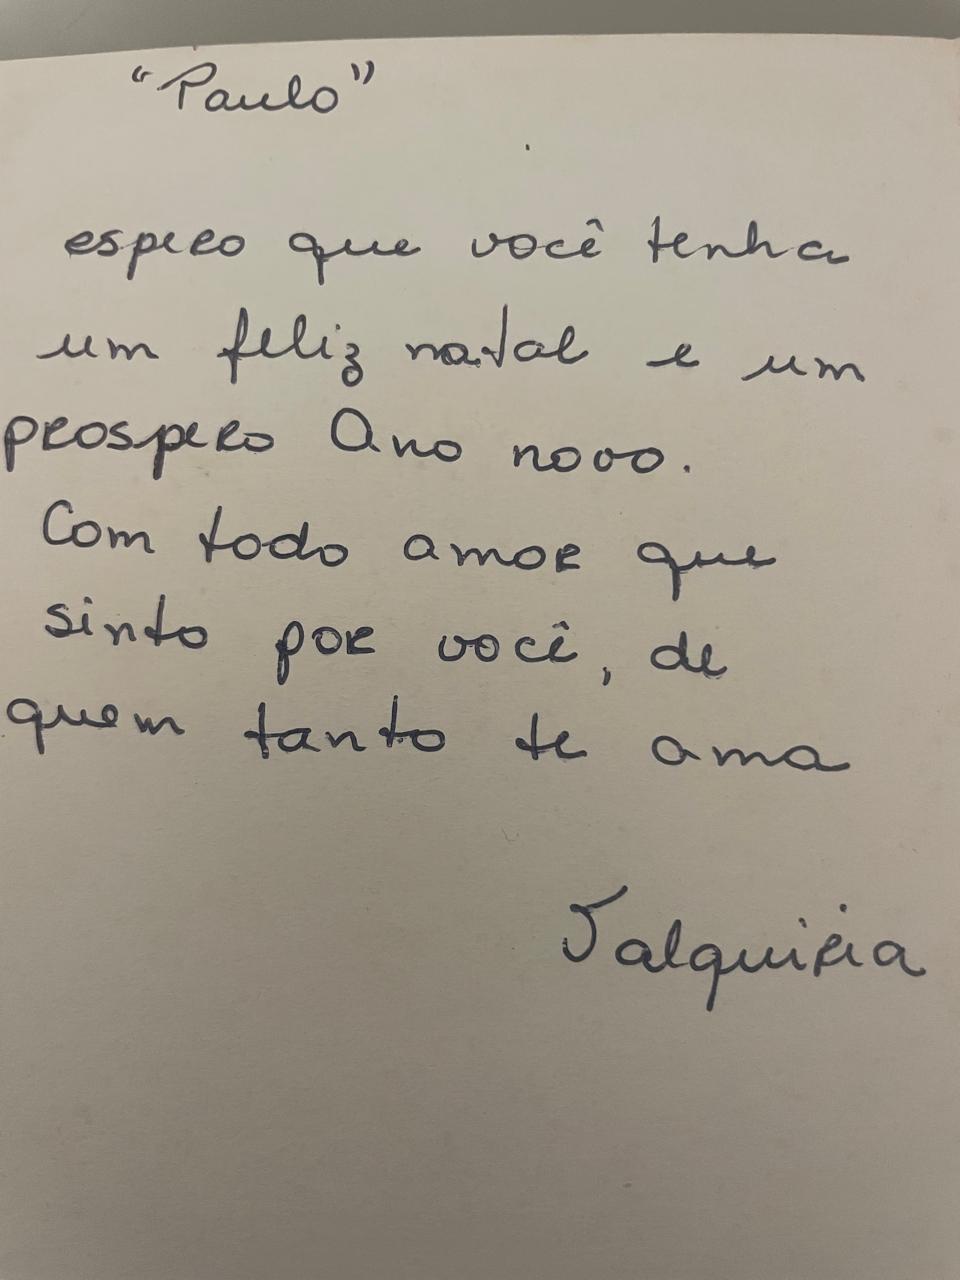 "Paulo"
espero que você tenha
um feliz natal e um
prospero Ano novo.
Com todo amor que
sinto por você, de
quem tanto te ama
Valquiria